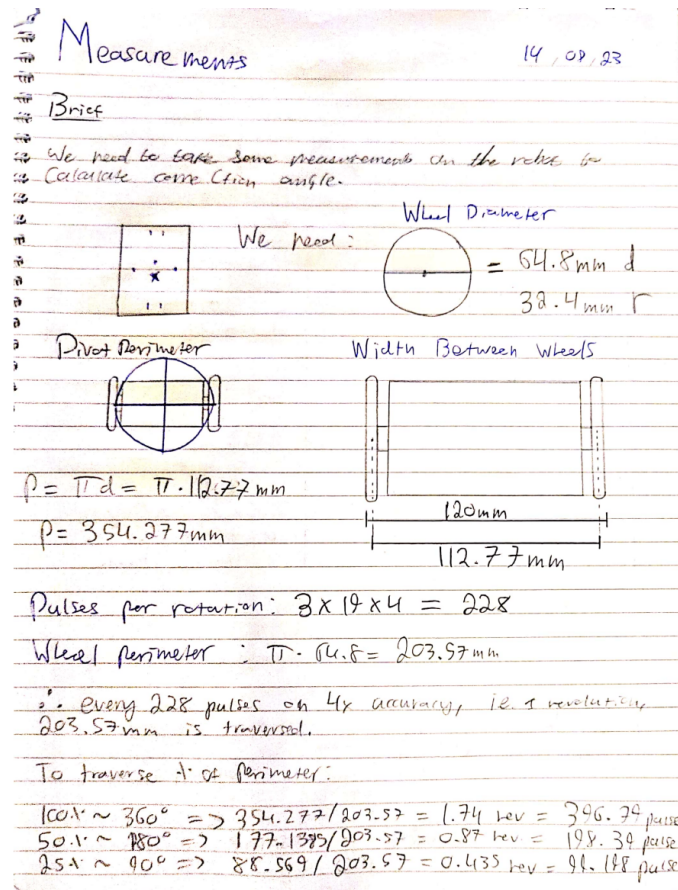 Measurements
14, 08, 23
Brief
We need to take some measurements on the robot to
Calculate correction angle.
We need:
Wheel Diameter
= 64.8mm d
32.4mm r
Pivot Perimeter
Width Between Wheels
P = πd = π·112.77mm
P = 354.277mm
120mm
112.77mm
Pulses per rotation: 3 x 19 x 4 = 228
Wheel perimeter : π· 64.8 = 203.57mm
∴ every 228 pulses on 4x accuracy, i.e. 1 revolution,
203.57mm is traversed.
To traverse % of perimeter:
100% ~ 360° => 354.277/203.57 = 1.74 rev = 396.79 pulse
50% ~ 180° => 177.1385/203.57 = 0.87 rev = 198.39 pulse
25% ~ 90° => 88.569/203.57 = 0.435 rev = 99.198 pulse